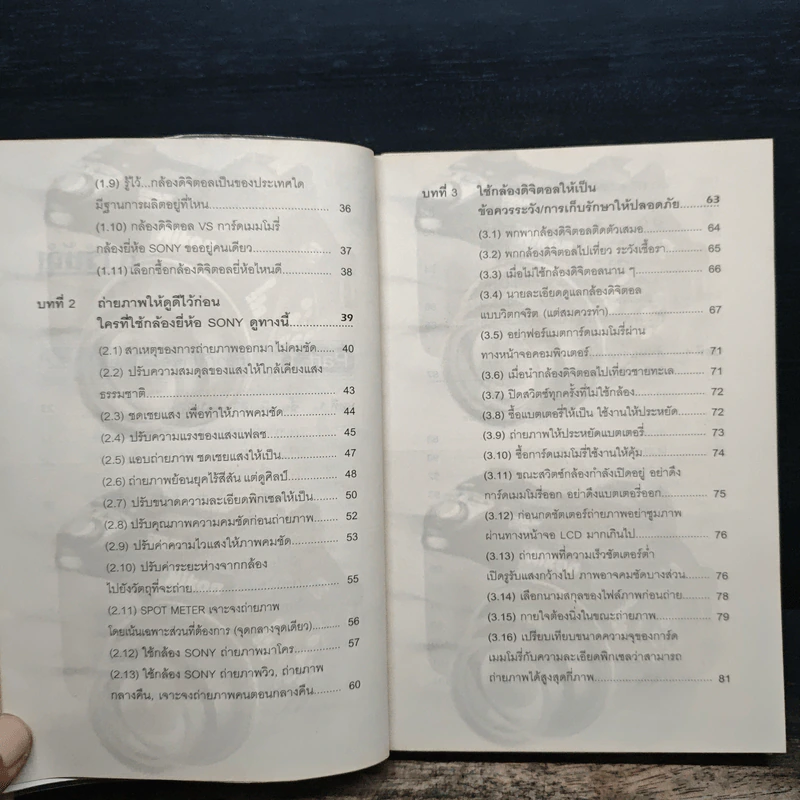 (1.9) รู้ไว้...กล้องดิจิตอลเป็นของประเทศใด
มีฐานการผลิตอยู่ที่ไหน.......................................... 36
(1.10) กล้องดิจิตอล VS การ์ดเมมโมรี่
กล้องยี่ห้อ SONY ขออยู่คนเดียว........................ 37
(1.11) เลือกซื้อกล้องดิจิตอลยี่ห้อไหนดี.............. 38
บทที่ 2 ถ่ายภาพให้ดูดีไว้ก่อน
ใครที่ใช้กล้องยี่ห้อ SONY ดูทางนี้................ 39
(2.1) สาเหตุของการถ่ายภาพออกมา ไม่คมชัด...... 40
(2.2) ปรับความสมดุลของแสงให้ใกล้เคียงแสง
ธรรมชาติ................................................... 43
(2.3) ชดเชยแสง เพื่อทำให้ภาพคมชัด............... 44
(2.4) ปรับความแรงของแสงแฟลช..................... 45
(2.5) แอบถ่ายภาพ ชดเชยแสงให้เป็น................ 47
(2.6) ถ่ายภาพย้อนยุคไร้สีสัน แต่ดูศิลป์............. 48
(2.7) ปรับขนาดความละเอียดพิกเซลให้เป็น......... 50
(2.8) ปรับคุณภาพความคมชัดก่อนถ่ายภาพ......... 52
(2.9) ปรับค่าความไวแสงให้ภาพคมชัด............... 53
(2.10) ปรับค่าระยะห่างจากกล้อง
ไปยังวัตถุที่จะถ่าย...................................... 55
(2.11) SPOT METER เจาะจงถ่ายภาพ
โดยเน้นเฉพาะส่วนที่ต้องการ (จุดกลางจุดเดียว)... 56
(2.12) ใช้กล้อง SONY ถ่ายภาพมาโคร............... 57
(2.13) ใช้กล้อง SONY ถ่ายภาพวิว, ถ่ายภาพ
กลางคืน, เจาะจงถ่ายภาพคนตอนกลางคืน......... 60
บทที่ 3 ใช้กล้องดิจิตอลให้เป็น
ข้อควรระวัง/การเก็บรักษาให้ปลอดภัย....... 63
(3.1) พกพากล้องดิจิตอลติดตัวเสมอ................. 64
(3.2) พกกล้องดิจิตอลไปเที่ยว ระวังเชื้อรา.......... 65
(3.3) เมื่อไม่ใช้กล้องดิจิตอลนาน ๆ .................. 66
(3.4) นายละเอียดดูแลกล้องดิจิตอล
แบบวิตกจริต (แต่สมควรทำ)......................... 67
(3.5) อย่าฟอร์แมตการ์ดเมมโมรี่ผ่าน
ทางหน้าจอคอมพิวเตอร์............................... 71
(3.6) เมื่อนำกล้องดิจิตอลไปเที่ยวชายทะเล......... 71
(3.7) ปิดสวิตซ์ทุกครั้งที่ไม่ใช้กล้อง................... 72
(3.8) ซื้อแบตเตอรี่ให้เป็น ใช้งานให้ประหยัด........ 72
(3.9) ถ่ายภาพให้ประหยัดแบตเตอรี่................... 73
(3.10) ซื้อการ์ดเมมโมรี่ใช้งานให้คุ้ม.................. 74
(3.11) ขณะสวิตซ์กล้องกำลังเปิดอยู่ อย่าดึง
การ์ดเมมโมรี่ออก อย่าดึงแบตเตอรี่ออก............ 75
(3.12) ก่อนกดชัตเตอร์ถ่ายภาพอย่าซูมภาพ
ผ่านทางหน้าจอ LCD มากเกินไป.................... 76
(3.13) ถ่ายภาพที่ความเร็วชัตเตอร์ต่ำ
เปิดรูรับแสงกว้างไป ภาพอาจคมชัดบางส่วน....... 76
(3.14) เลือกนามสกุลของไฟล์ภาพก่อนถ่าย......... 78
(3.15) กายใจต้องนิ่งในขณะถ่ายภาพ................ 79
(3.16) เปรียบเทียบขนาดความจุของการ์ด
เมมโมรี่กับความละเอียดพิกเซลว่าสามารถ
ถ่ายภาพได้สูงสุดกี่ภาพ................................ 81